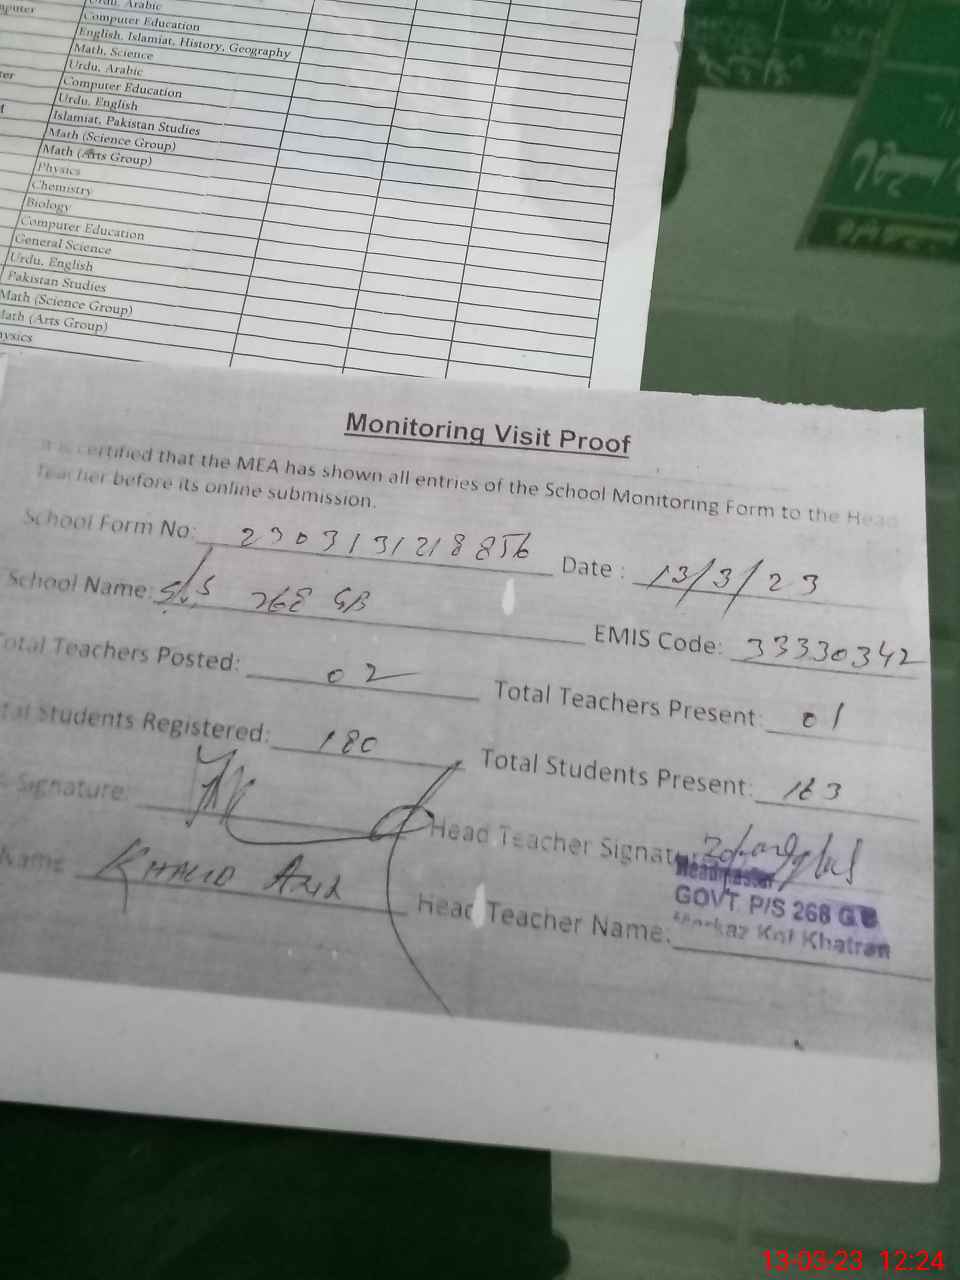 mputer
Urdu, Arabic
Computer Education
English, Islamiat, History, Geography
Math, Science
Urdu, Arabic
Computer Education
Urdu, English
Islamiat, Pakistan Studies
Math (Science Group)
Math (Arts Group)
Physics
Chemistry
Biology
Computer Education
General Science
Urdu, English
Pakistan Studies
Math (Science Group)
Math (Arts Group)
ysics
Monitoring Visit Proof
It is certified that the MEA has shown all entries of the School Monitoring Form to the Head
Teacher before its online submission.
School Form No: 2303131218856 Date : 13/3/23
School Name: 268 GB EMIS Code: 33330342
Total Teachers Posted: 02 Total Teachers Present: 01
tal Students Registered: 180 Total Students Present: 163
Signature: Head Teacher Signatu
Name KHALID Head Teacher Name:
Headmaster
GOVT. P/S 268 GB
Markaz Kot Khatran
13-03-23 12:24